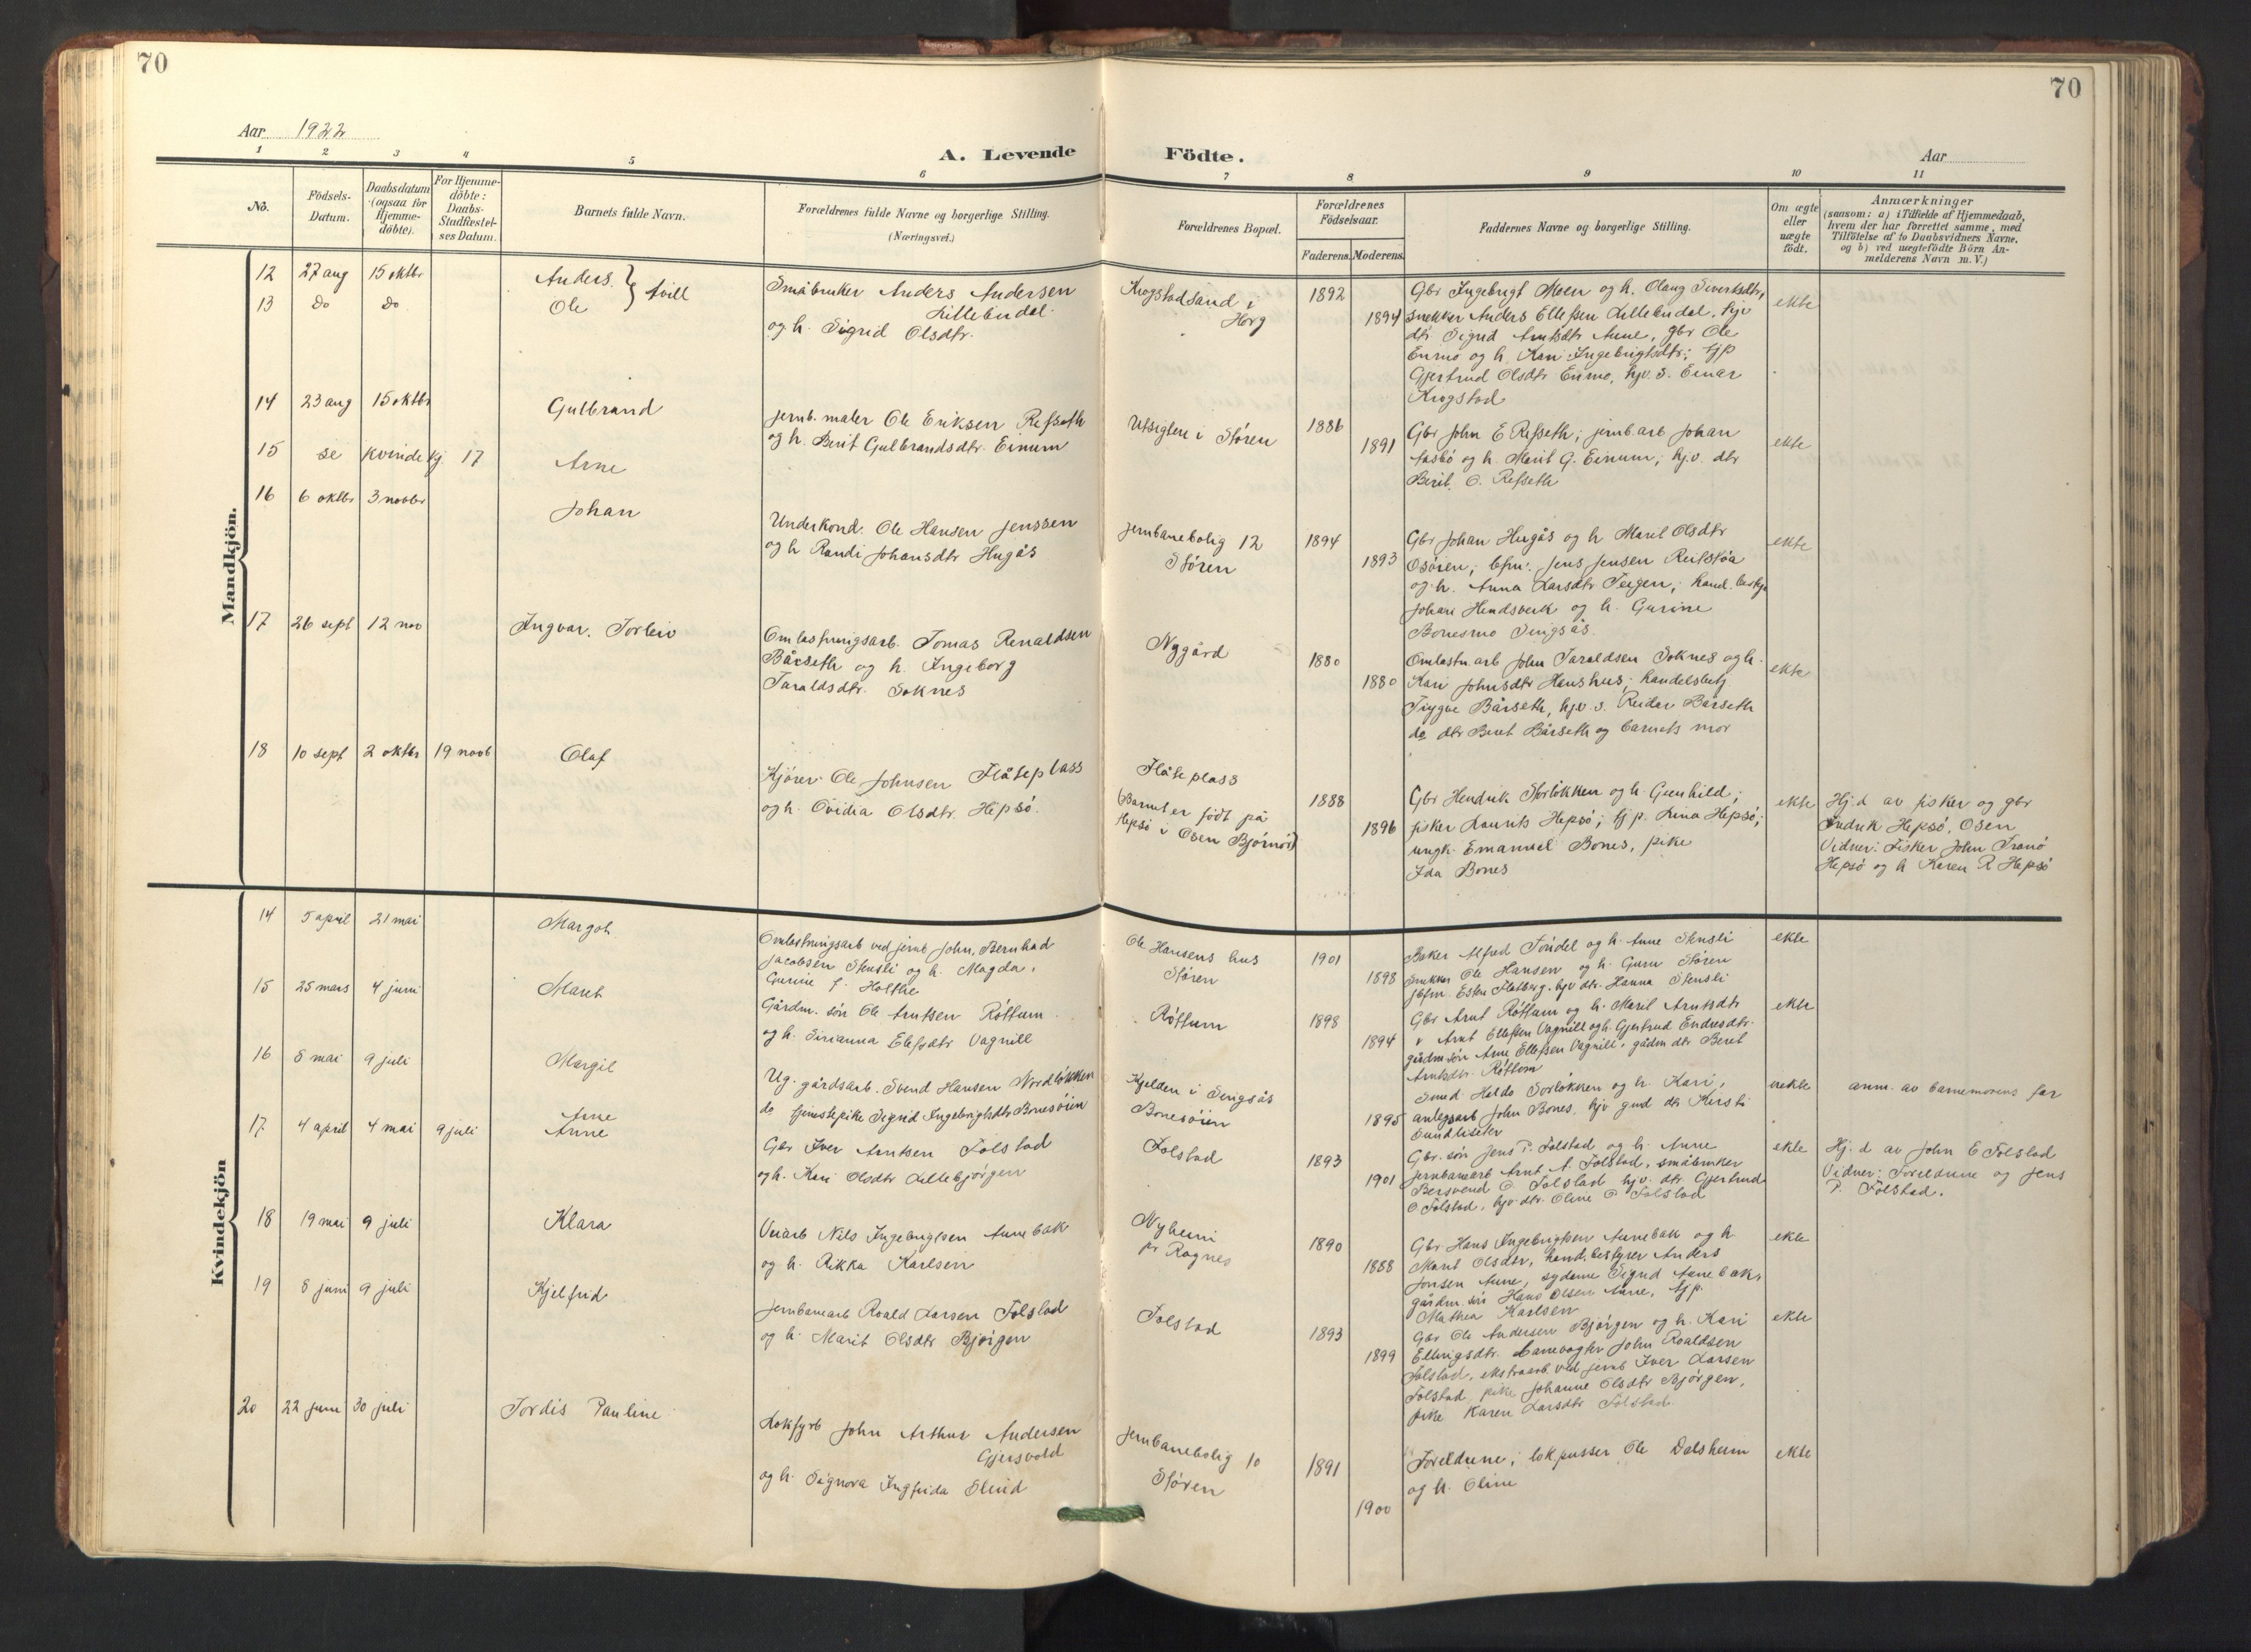 70
70
Aar 1922
A. Levende Födte.
Aar
1 2 3 4 5 6 7 8 9 10 11
No.
Födsels-Datum.
Daabsdatum (ogsaa for Hjemme-döbte).
For Hjemme-döbte: Daabs-Stadfæstel-ses Datum.
Barnets fulde Navn.
Forældrenes fulde Navne og borgerlige Stilling.
(Næringsvei.)
Forældrenes Bopæl.
Forældrenes Födselsaar.
Faderens. Moderens.
Faddernes Navne og borgerlige Stilling.
Om ægte eller uægte födt.
Anmærkninger
(saasom: a) i Tilfælde af Hjemmedaab,
hvem der har forrettet samme, med
Tilföielse af to Daabsvidners Navne,
og b) ved uægtefödte Börn An-
melderens Navn m. V.)
Mandkjön.
12 27 aug 15 oktbr Anders
13 do do Ole } tvill
Småbruker Anders Andersen
Lillebudal
og h. Sigrid Olsdtr.
Krogstadsand i
Horg
1892
1894
Gbr Ingebrigt Moen og h. Olaug Sivertsdtr,
snekker Anders Ellefsen Lillebudal, hjv
dtr Sigrid Arntsdtr Aune, gbr Ole
Enmo og h. Kari Ingebrigtsdtr; tjp
Gjertrud Olsdtr Enmo, hjv. s. Einar
Krogstad
ekte
14 23 aug 15 oktbr Gulbrand
jernb. maler Ole Eriksen Refseth
og h. Berit Gulbrandsdtr. Einum
Utsigten i Støren
1886
1891
Gbr John E Refseth; jernb.arb Johan
og h. Marit G. Einum, hjv. dtr
Berit O. Refseth
ekte
15 se kvindekj. 17 Arne
16 6 oktbr 3 novbr Johan
Underkond. Ole Hansen Jenssen
og h Randi Johansdtr Hugås
Jernbanebolig 12
Støren
1894
1893
Gbr Johan Hugås og h Marit Olsdtr
Osøren; bfm. Jens Jensen Reitstøa
og h. Anna Larsdtr Teigen; hand. besty
Johan Hendsverk og h. Gurine
Bonesmo Singsås.
ekte
17 26 sept 12 nov Ingvar Torleiv
Omlastningsarb. Tomas Renaldsen
Bårseth og h. Ingeborg
Taraldsdtr. Soknes
Nygård
1880
1880
Omlastn arb John Taraldsen Soknes og h.
Kari Johnsdtr Haushus; handelsbetj
Trygve Bårseth, hjv. s. Reidar Bårseth
do dtr Beret Bårseth og barnets mor
ekte
18 10 sept 2 oktbr 19 novb Olaf
Kjører Ole Johnsen Flåteplass
og h. Ovidia Olsdtr. Hepsø.
Flåteplass
(Barnet er født på
Hepsø i Osen Bjørnør)
1888
1896
Gbr Hendrik Storløkken og h. Gunhild;
fisker Laurits Hepsø; tj p. Lina Hepsø;
ungk. Emanuel Bones, pike
Ida Bones
ekte
Hj.d av fisker og gbr
Indrik Hepsø, Osen
Vidner: Fisker John Tranø
Hepsø og h Karen R Hepsø
Kvindekjön
14 5 april 21 mai Margot
Omlastningsarb ved jernb John Bernhad
Jacobsen Stensli og h. Magda
Gurine f. Holthe
Ole Hansens hus
Støren
1901
1898
Baker Alfred Tøndel og h. Anne Stensli
snekker Ole Hansen og h. Guru Støren
Jbfm. Esten Flatberg. hjv dtr. Hanna Stensli
ekte
15 25 mars 4 juni Marit
Gårdm. søn Ole Arntsen Røttum
og h. Sirianna Elefsdtr Vagnill
Røttum
1898
1894
Gbr Arnt Røttum og h. Marit Arntsdtr
v Arnt Ellefsen Vagnill og h. Gjertrud Endresdtr.
gårdm.søn Arne Ellefsen Vagnill, gådm dtr Beret
Arntsdtr. Røttum
ekte
16 8 mai 9 juli Margit
Ug. gårdsarb. Svend Hansen Nordløkken
do tjenestepike Sigrid Ingebrigtsdtr Bonesøien
Kjelden i Singsås
Bonesøien
1895
Smed Haldo Sorløkken og h. Kari,
anlegsarb John Bones, hjv gmd dtr Kirsti
Sundlisetr
uekte
anm. av barnemorens far
17 4 april 4 mai 9 juli Arne
Anne
Gbr Iver Arntsen Folstad
og h. Kari Olsdtr Lillebjørgen
Folstad
1893
1901
Gbr. søn Jens P. Folstad og h. Anne
jernbanearb Arnt A. Folstad, småbruker
Bersvend O Folstad hjv. dtr. Gjertrud
O Folstad, hjv dtr. Oline O Folstad
ekte
Hj. d av John E Folstad
Vidner: Foreldrene og Jens
P. Folstad.
18 19 mai 9 juli Klara
Veiarb Nils Ingebrigtsen Aunebak
og h. Rikka Karlsen
Nyheim
pr Rognes
1890
1888
Gbr Hans Ingebrigtsen Aunebak og h
Marit Olsdtr, hand. bestyrer Anders
Jonsen Aune, sydame Sigrid Aunebak,
gårdm. søn Hans Olsen Aune, tjp.
Mathea Karlsen
ekte
19 8 juni 9 juli Kjelfrid
Jernbanearb Roald Larsen Folstad
og h. Marit Olsdtr Bjørgen
Folstad
1893
1899
Gbr Ole Andersen Bjørgen og h. Kari
Ellingsdtr. banevogter John Roaldsen
Folstad, ekstraarb. ved jernb Iver Larsen
Folstad pike Johanne Olsdtr Bjørgen,
pike Karen Larsdtr Folstad.
ekte
20 22 juni 30 juli Tordis Pauline
Lokfyrb John Arthur Andersen
Gjersvold
og h. Signora Ingfrida Elvid
Jernbanebolig 10
Støren
1891
1900
Foreldrene; lokpusser Ole Dalsheim
og h. Oline
ekte